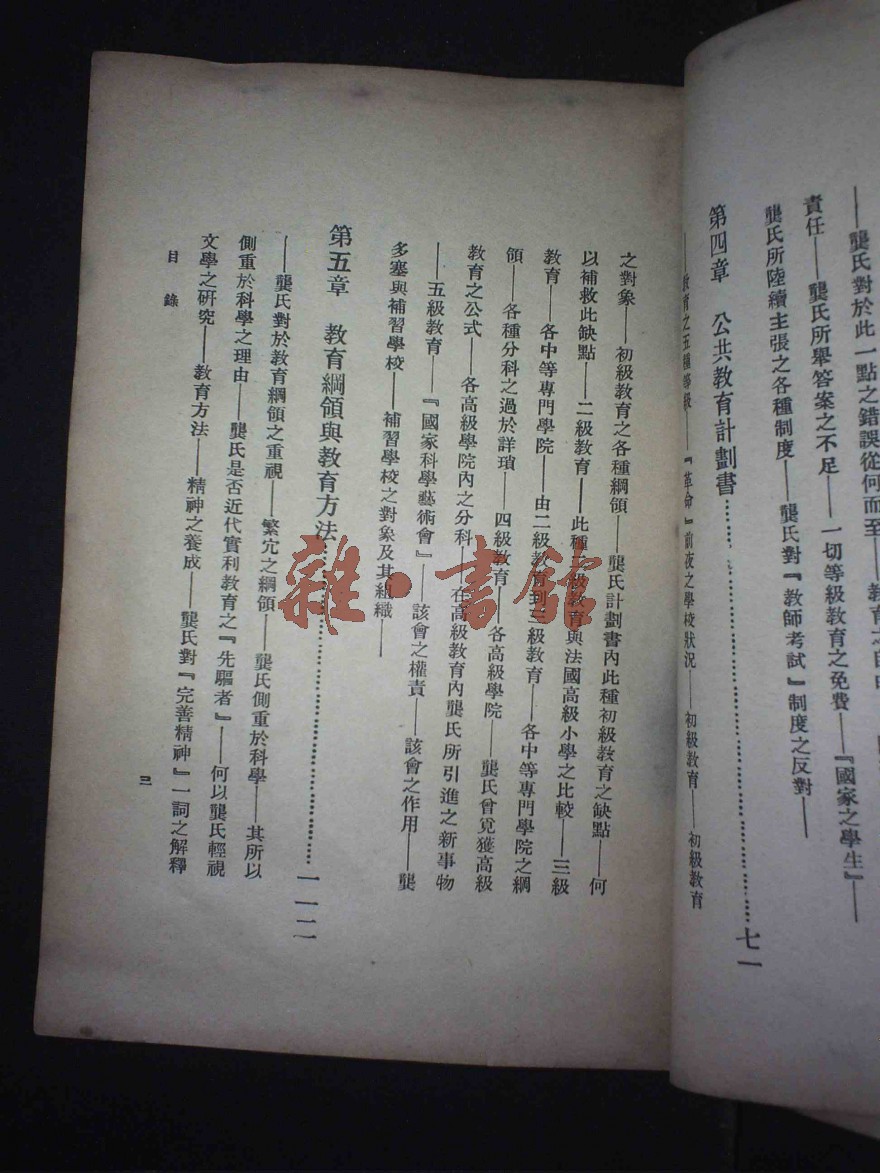 ——龔氏對於此一點之錯誤從何而至——教育之自由
責任——龔氏所舉答案之不足——一切等級教育之免費——『國家之學生』——
龔氏所陸續主張之各種制度——龔氏對『教師考試』制度之反對——
第四章 公共教育計劃書……七一
——教育之五種等級——『革命』前夜之學校狀況——初級教育——初級教育
之對象——初級教育之各種綱領——龔氏計劃書內此種初級教育之缺點——何
以補救此缺點——二級教育——此種二級教育與法國高級小學之比較——三級
教育——各中等專門學院——由二級教育到三級教育——各中等專門學院之綱
領——各種分科之過於詳瑣——四級教育——各高級學院——龔氏曾覓獲高級
教育之公式——各高級學院內之分科——在高級教育內龔氏所引進之新事物
——五級教育——『國家科學藝術會』——該會之權責——該會之作用——龔
多塞與補習學校——補習學校之對象及其組織——
第五章 教育綱領與教育方法……一一二
——龔氏對於教育綱領之重視——繁冗之綱領——龔氏側重於科學——其所以
側重於科學之理由——龔氏是否近代實利教育之『先驅者』——何以龔氏輕視
文學之研究——教育方法——精神之養成——龔氏對『完善精神』一詞之解釋
目錄
三
雜·書館